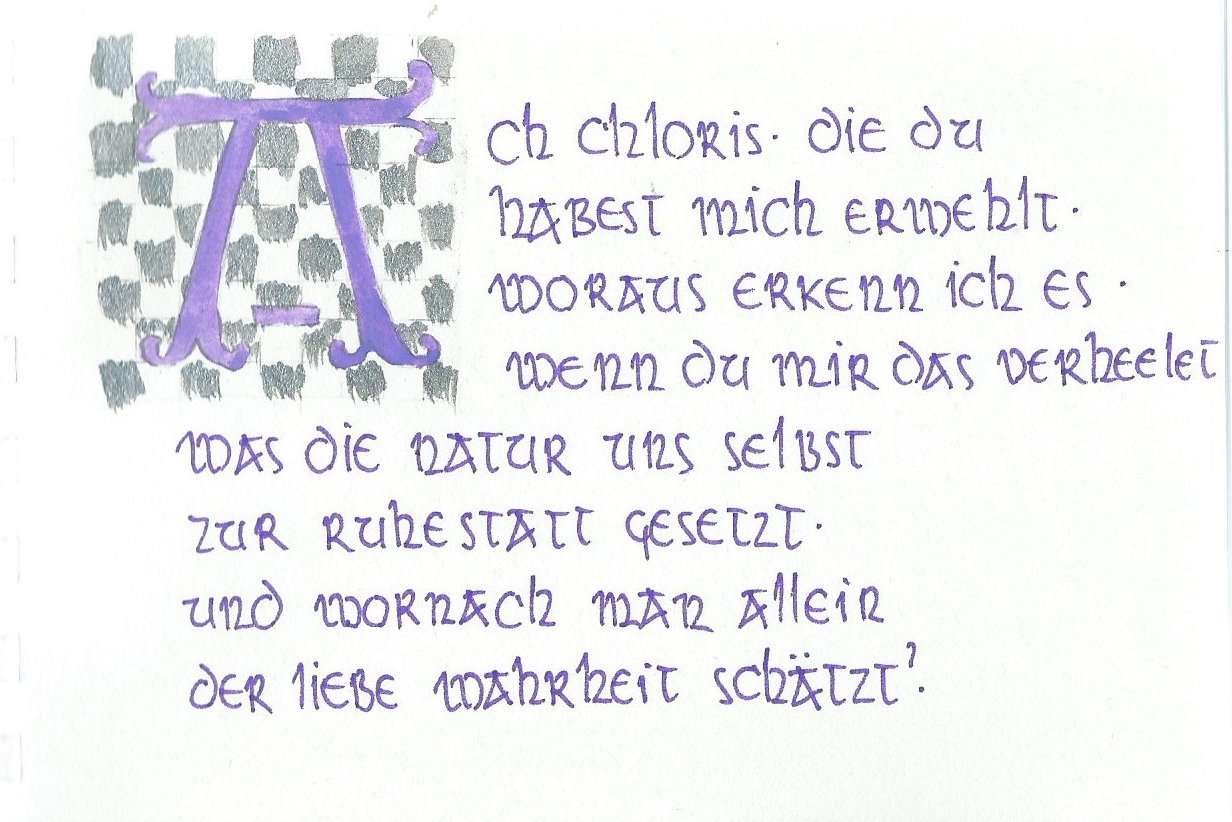 Ach Chloris. die du
habest mich erwehlt.
woraus erkenn ich es.
wenn du mir das verheelet
was die natur uns selbst
zur ruhestatt gesetzt.
und wornach man allein
der liebe wahrheit schätzt?